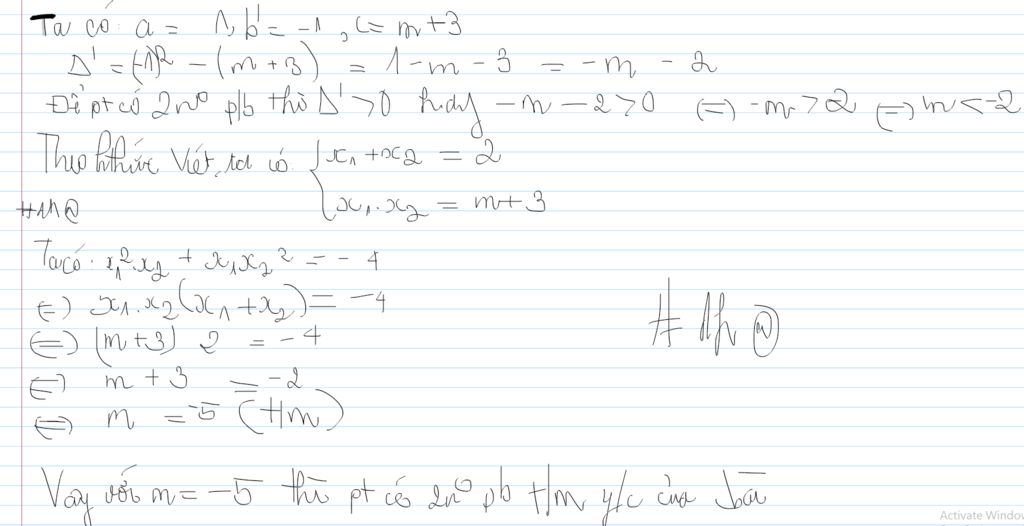 Ta có: a = 1, b' = -1, c = m+3
Δ' = (-1)² - (m+3) = 1-m-3 = -m-2
Để pt có 2n⁰ p/b thì Δ' > 0 hay -m-2>0 (=) -m>2 (=) m<-2
Theo hthức Viét, ta có { x₁+x₂ = 2
x₁.x₂ = m+3
Ta có: x₁².x₂ + x₁x₂² = -4
(=) x₁.x₂(x₁+x₂) = -4
(=) (m+3) 2 = -4
(=) m + 3 = -2
(=) m = -5 (t/m)
Vay với m = -5 thì pt có 2n⁰ pb t/m y/c của bài
Activate Window